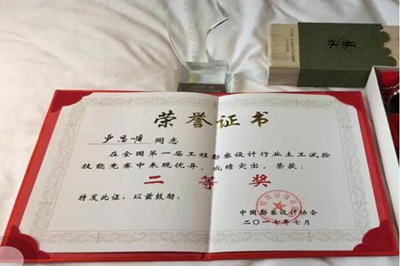 荣誉证书
同志
在全国第一届工程勘察设计行业土工试验
技能竞赛中表现优异、成绩突出,荣获:
二等奖
特发此证,以兹鼓励。
中国勘察设计协会
二〇一七年七月